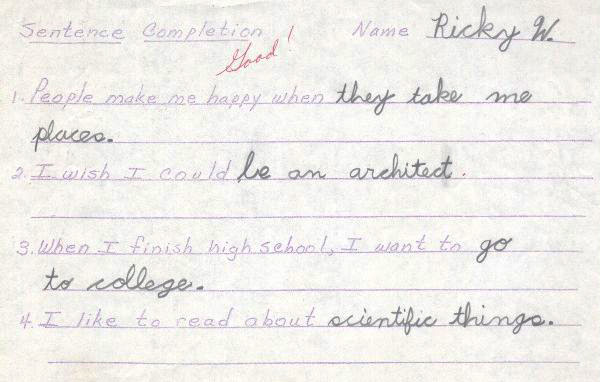 Sentence Completion Name Ricky W.
Good!
1. People make me happy when they take me
places.
2. I wish I could be an architect.
3. When I finish high school, I want to go
to college.
4. I like to read about scientific things.